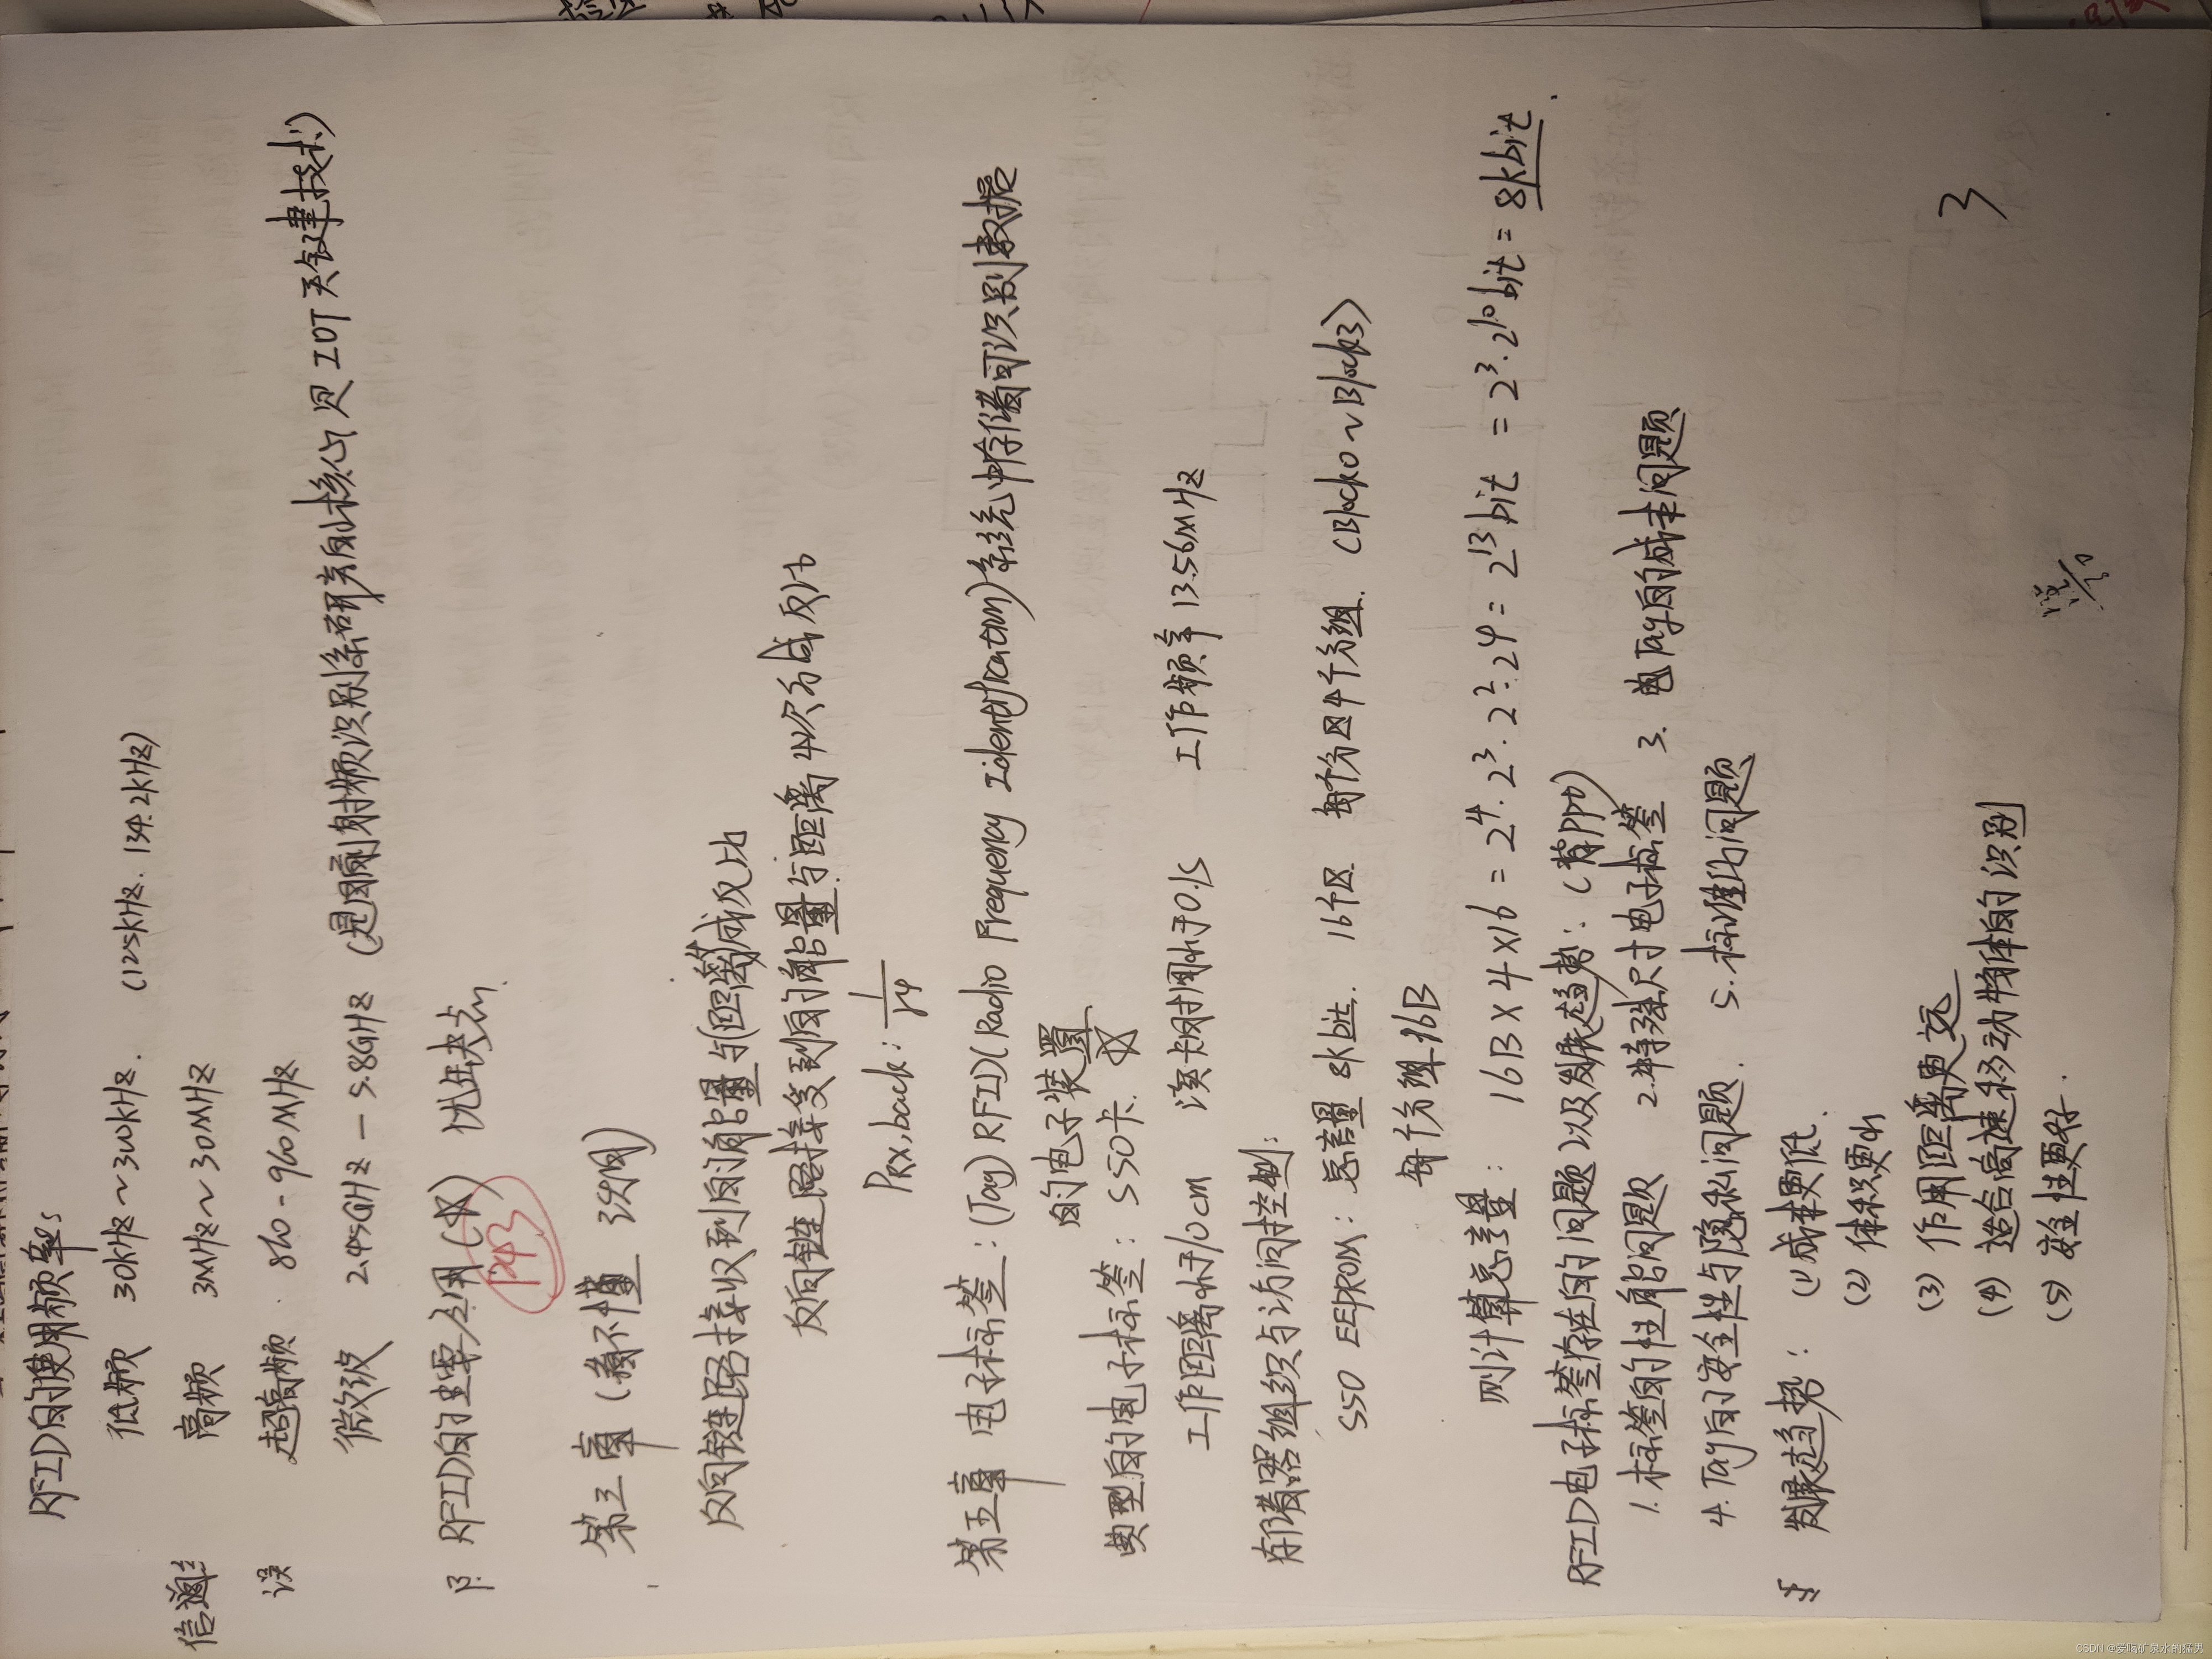 RFID的使用频率
低频 30kHz~300kHz. (125kHz. 134.2kHz)
信道 高频 3MHz~30MHz
误 超高频 860-960MHz
微波 2.45GHz-5.8GHz (是目前射频识别系研发的核心,是IOT关键技术)
RFID的主要应用(义) 优缺点.
P43
第三章 (看不懂 没用)
反向链路接收到的能量与距离成反比
反向链路接受到的能量与距离4次方成反比
PRX,back: 1/r4
第五章 电子标签:(Tag) RFID(Radio Frequency Identification)系统中存储可识别数据
的电子装置
典型的电子标签: S50卡.
工作距离小于10cm 读卡时间小于0.1s 工作频率13.56MHz
存储器组织与访问控制:
S50 EEPROM: 总容量 8kbit. 16个区. 每个分区4个分组. (Block0~Block3)
每个分组16B
则计算总容量: 16B×4×16=2^4.2^3.2^2.2^4=2^13bit=2^3.2^10bit=8kbit.
RFID电子标签存在的问题以及发展趋势:(背PPT)
1.标签的性能问题 2.特殊尺寸电子标签 3. Tag的成本问题
4.Tag的安全性与隐私问题. 5.标准化问题
发展趋势: (1)成本更低.
(2) 体积更小
(3) 作用距离更远
(4) 适合高速移动物体的识别
(5) 安全性更好.
3
CSDN @爱喝矿泉水的猛男